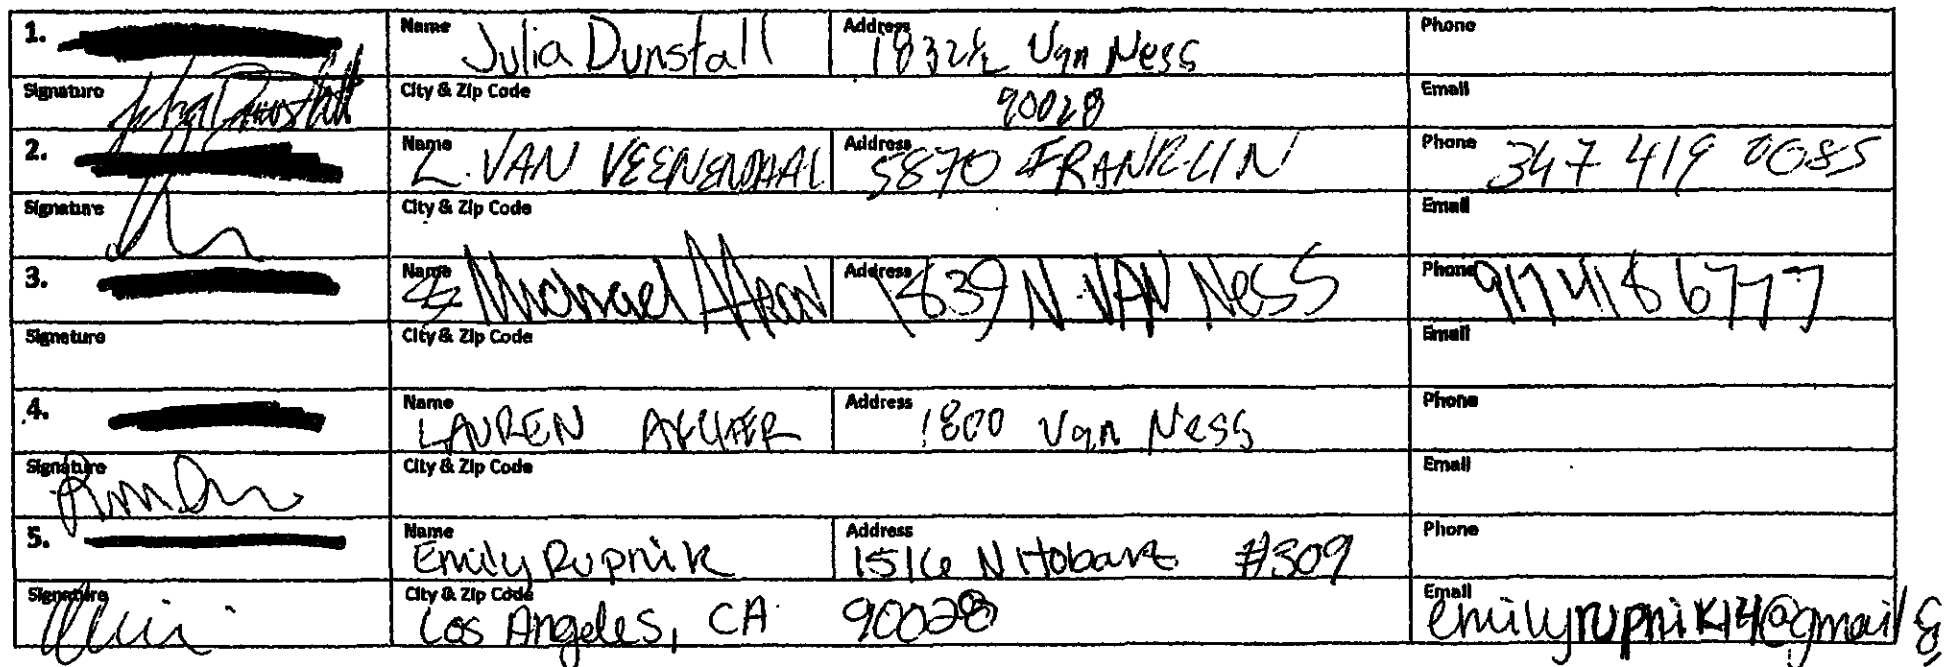 1. Name Julia Dunstall Address 1832½ Van Ness Phone
Signature City & Zip Code 90028 Email
2. Name L. VAN VEENENDAAL Address 5870 FRANKLIN Phone 347 419 0085
Signature City & Zip Code Email
3. Name Michael Address 1839 N. VAN NESS Phone 917 418 6777
Signature City & Zip Code Email
4. Name LAUREN Address 1800 Van Ness Phone
Signature City & Zip Code Email
5. Name Emily Rupnik Address 1516 N Hobart #309 Phone
Signature City & Zip Code Los Angeles, CA 90028 Email emilyrupnik14@gmail